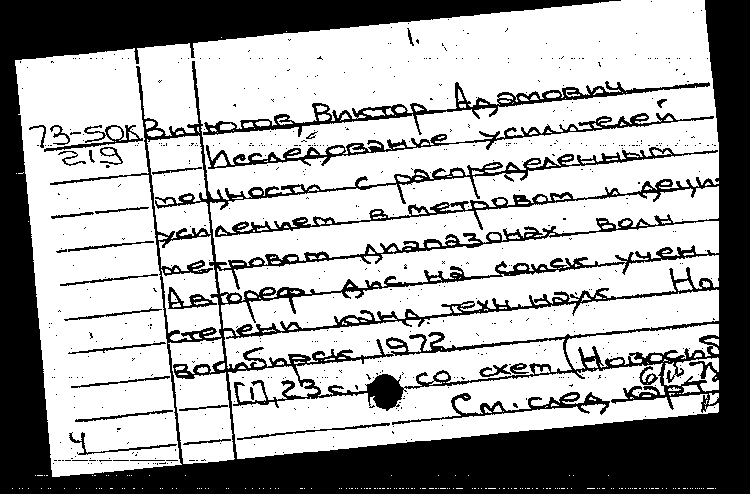 1.
73-50К Витюгов, Виктор Адамович
219 Исследование усилителей
мощности с распределенным
усилением в метровом и деци-
метровом диапазонах волн
Автореф. дис. на соиск. учен.
степени канд. техн. наук Но-
восибирск, 1972.
[1], 23 с. со схем. (Новосиб
См. след. карт
4